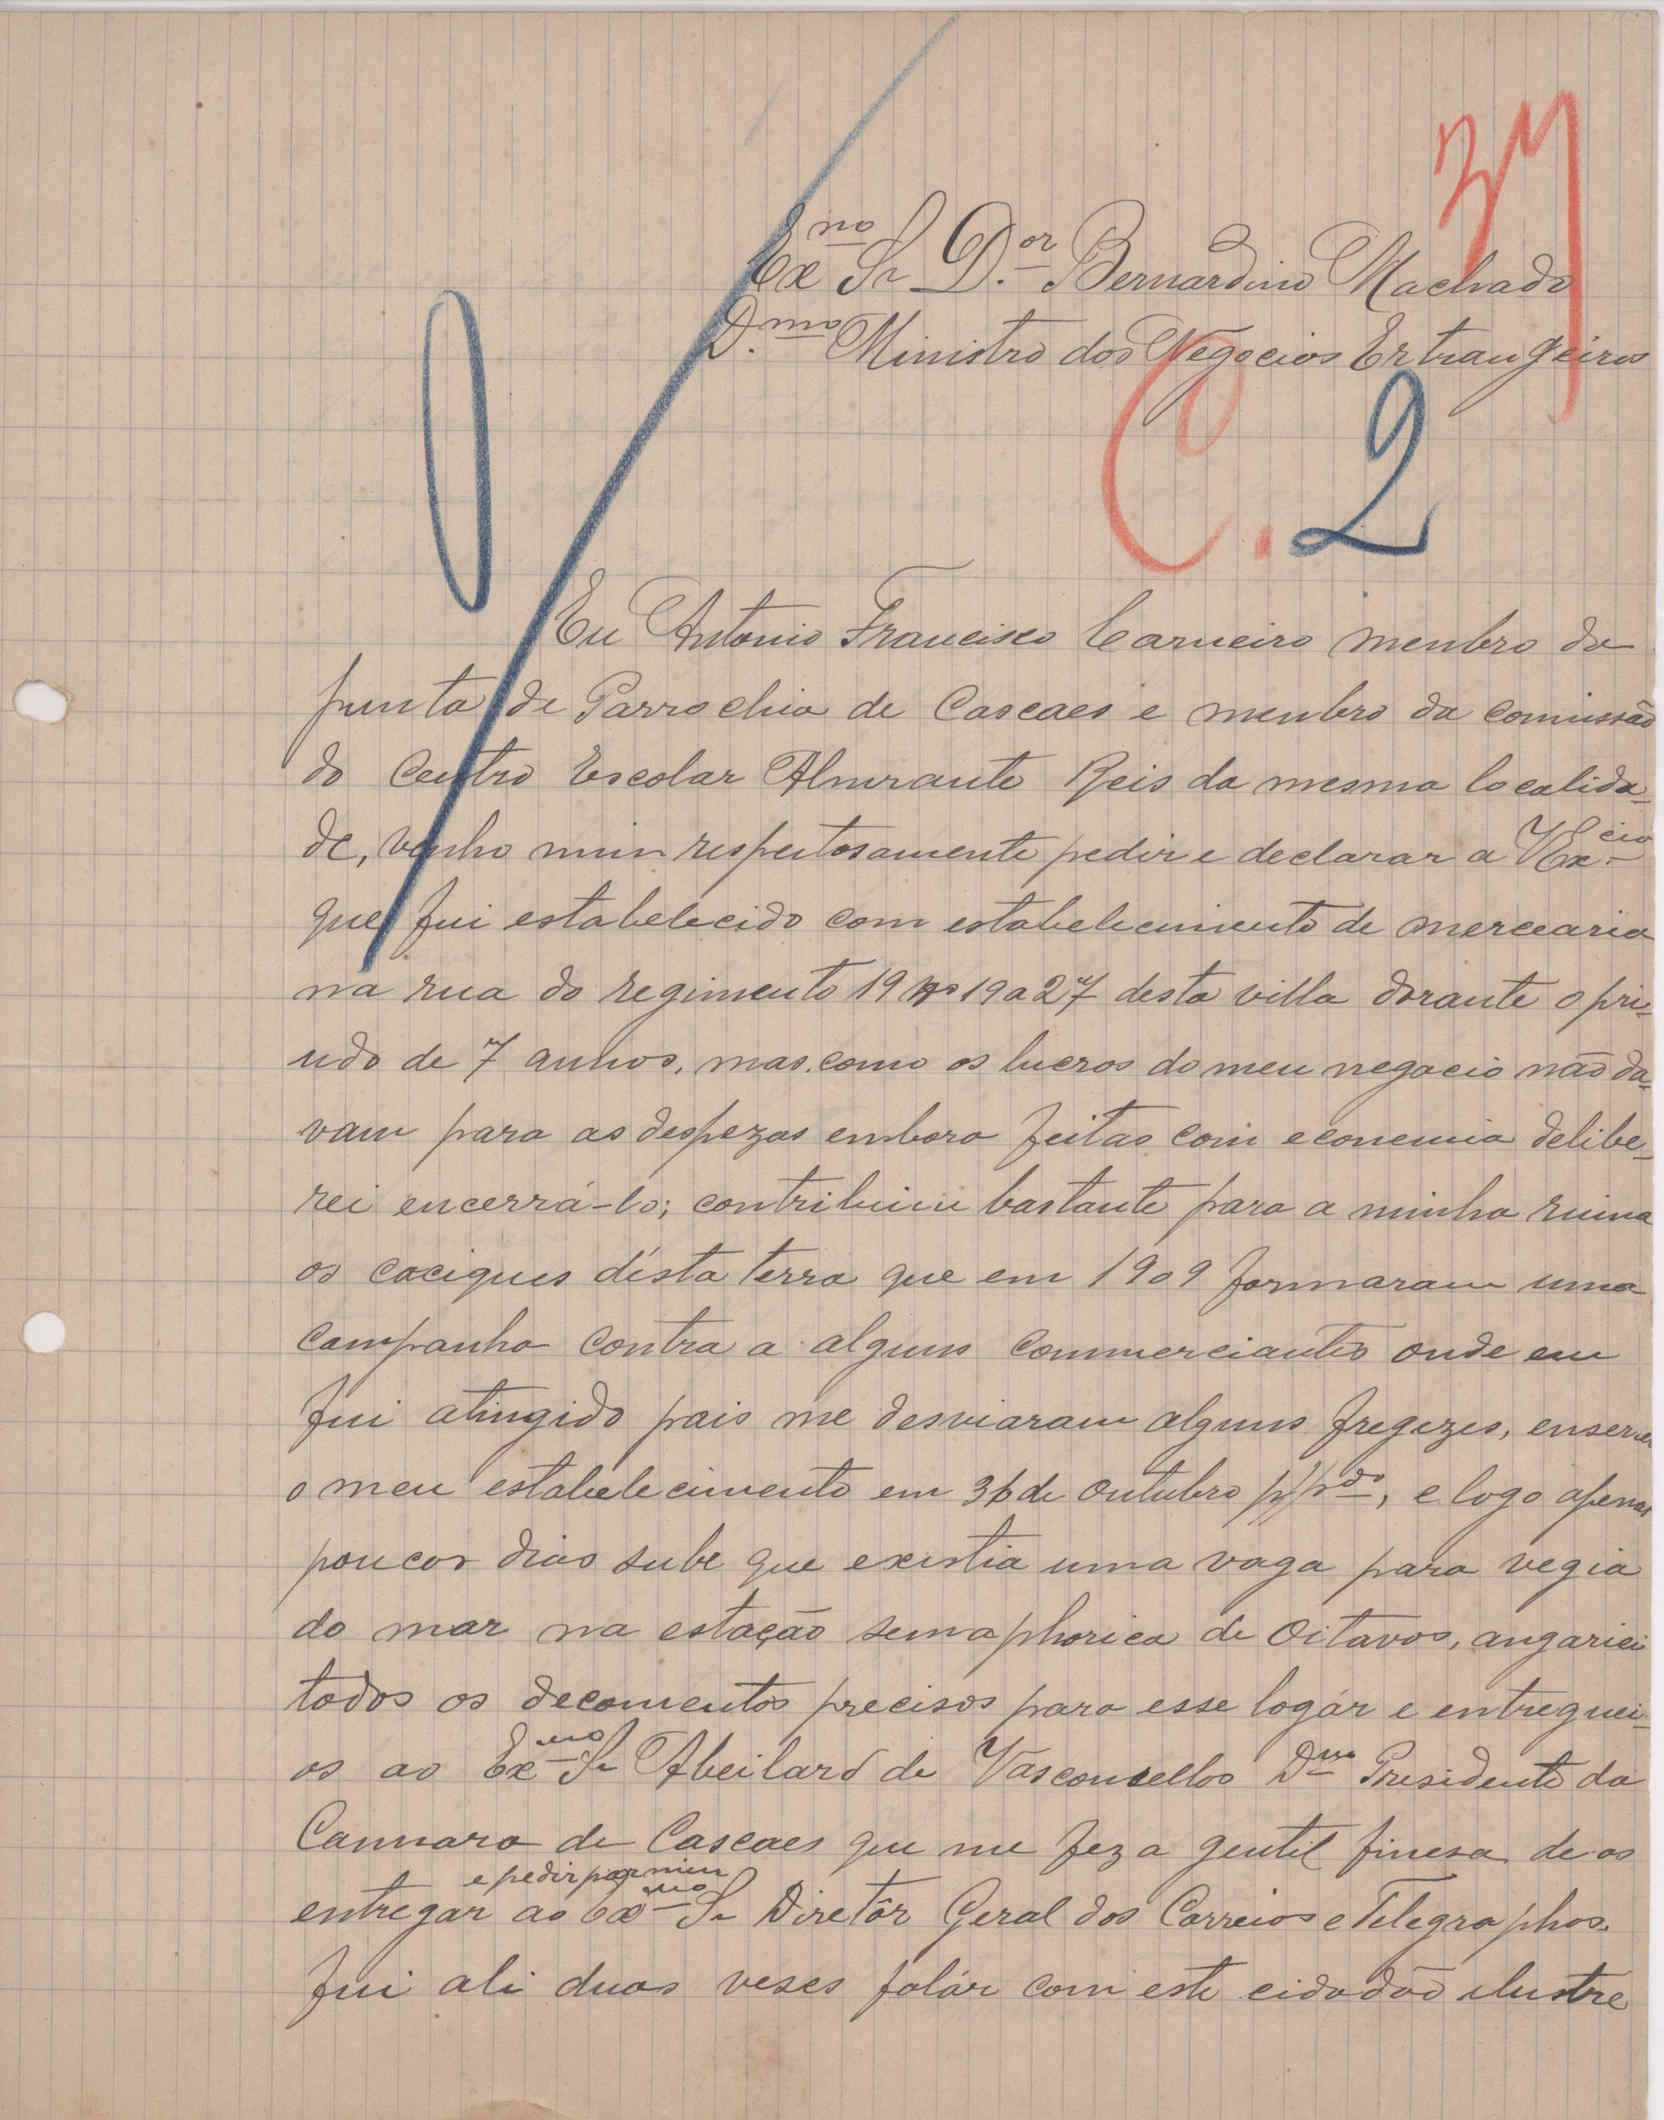 Exmo Sr D.or Bernardino Machado
D.mo Ministro dos Negocios Extrangeiros
C. 2
Eu Antonio Francisco Carneiro menbro da
junta de Parrochia de Cascaes e menbro da comissão
do Centro Escolar Almirante Reis da mesma localida-
de, venho mui respeitosamente pedir e declarar a V Ex.cia
que fui estabelecido com estabelecimento de mercearia
na rua do regimento 19 nos 19 a 27 desta villa dorante o pri-
udo de 7 annos, mas como os lucros do meu negocio não da-
vam para as despezas embora feitas com economia delibe-
rei encerrá-lo; contribuiu bastante para a minha ruina
os caciques désta terra que em 1909 formaram uma
campanha contra a alguns commerciantes onde eu
fui atingido pois me desviaram alguns fregezes, enserrei
o meu estabelecimento em de Outubro p/pdo, e logo apenas
poucos dias sube que existia uma vaga para vegia
do mar na estação semaphorica de Oitavos, angariei
todos os decomentos precisos para esse logár e entreguei-
os ao Exmo Sr Abeilard de Vasconcellos Dmo Presidente da
Cammara de Cascaes que me fez a gentil finesa de os
e pedir por mim
entregar ao Exmo Sr Diretôr Geral dos Correios e Telegraphos.
fui ali duas veses falár com este cidadão ilustre